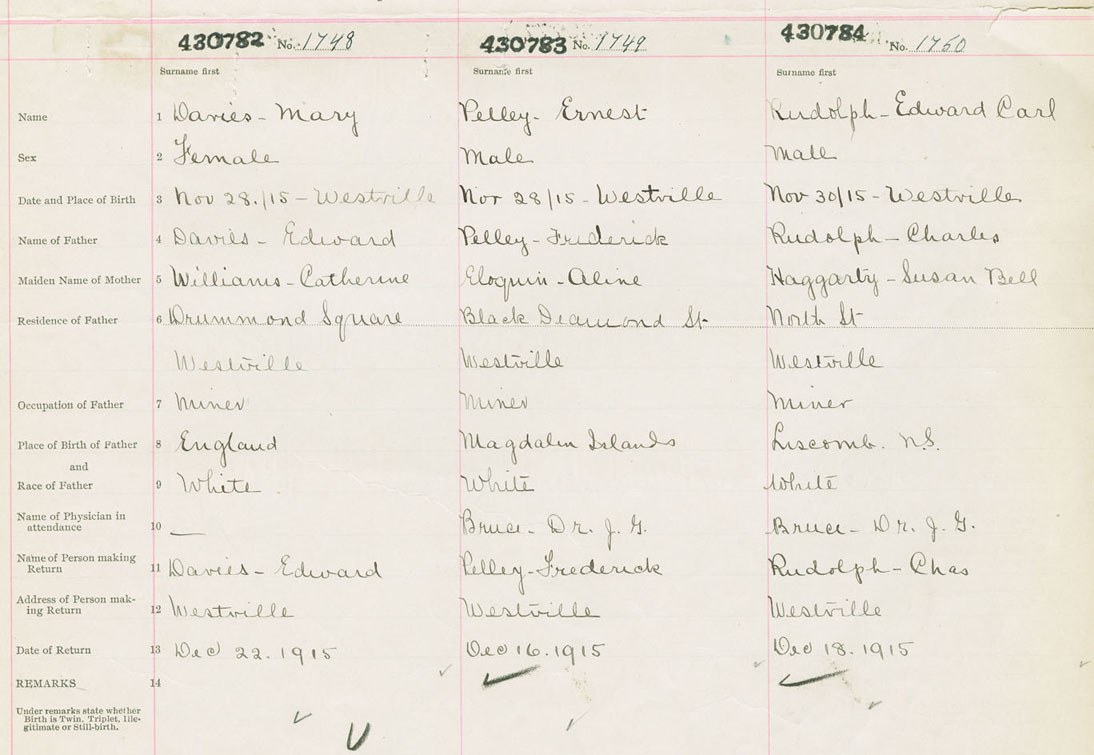 430782 No. 1748 430783 No. 1749 430784 No. 1750
Surname first Surname first Surname first
Name 1 Davies - Mary Pelley - Ernest Rudolph - Edward Carl
Sex 2 Female Male Male
Date and Place of Birth 3 Nov 28./15 - Westville Nov 28/15 - Westville Nov 30/15 - Westville
Name of Father 4 Davies - Edward Pelley - Frederick Rudolph - Charles
Maiden Name of Mother 5 Williams - Catherine Eloquin - Aline Haggarty - Susan Bell
Residence of Father 6 Drummond Square Black Diamond St North St
Westville Westville Westville
Occupation of Father 7 Miner Miner Miner
Place of Birth of Father 8 England Magdalen Islands Liscomb. N.S.
and
Race of Father 9 White White White
Name of Physician in
attendance 10 — Bruce - Dr. J. G. Bruce - Dr. J. G.
Name of Person making
Return 11 Davies - Edward Pelley - Frederick Rudolph - Chas
Address of Person mak-
ing Return 12 Westville Westville Westville
Date of Return 13 Dec 22. 1915 Dec 16. 1915 Dec 18. 1915
REMARKS 14
Under remarks state whether
Birth is Twin, Triplet, Ille-
gitimate or Still-birth.